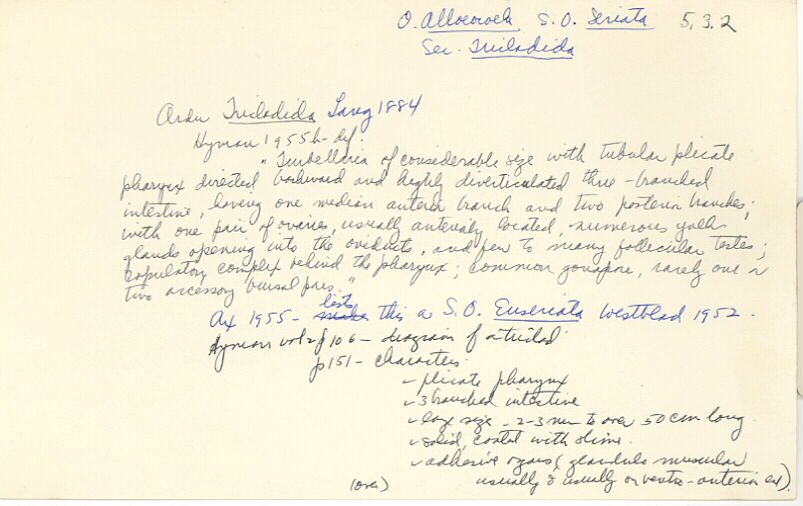 O. Allocoela S. O. Seriata 5.3.2
Sec. Tricladida
Order Tricladida Lang 1884
Hyman 1955b- def.
"Turbellaria of considerable size with tubular plicate
pharynx directed backward and highly diverticulated three-branched
intestine, having one median anterior branch and two posterior branches;
with one pair of ovaries, usually anteriorly located, numerous yolk
glands opening into the oviducts, and few to many follicular testes;
copulatory complex behind the pharynx; common gonopore, rarely one or
two accessory bursal pores."
lists
Ax 1955- makes this a S.O. Euseriata Westblad 1952.
Hyman vol 2 p 106 - diagram of a triclad
p151- characters
- plicate pharynx
- 3 branched intestine
- large size - 2-3 mm to over 50 cm long.
- solid, coated with slime.
- adhesive organs (glandulo muscular
(over) usually & usually on ventro-anterior